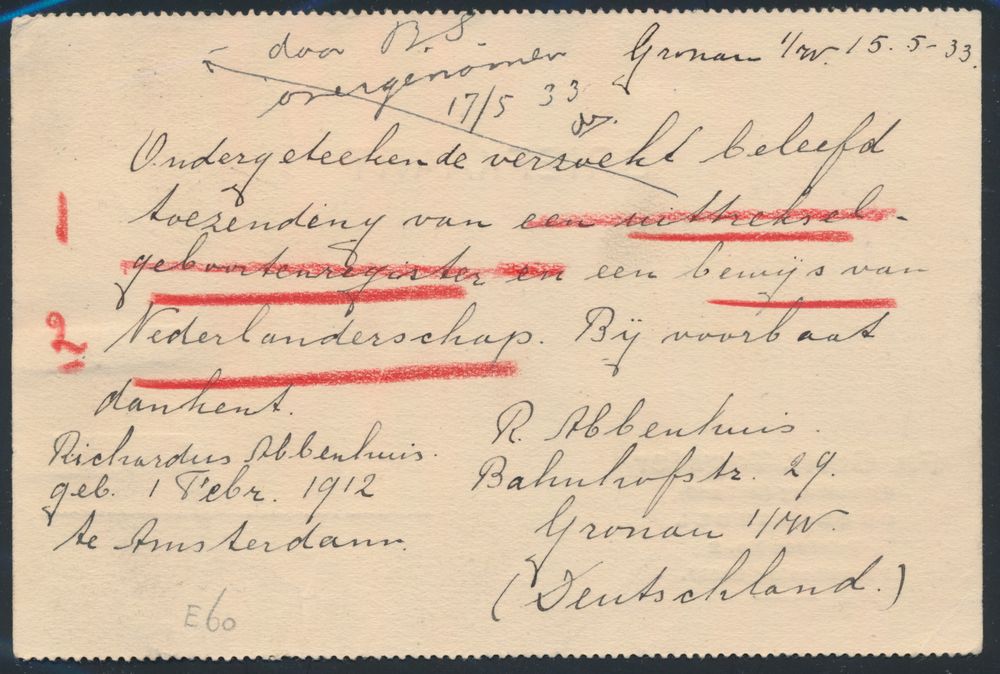 door B.S.
overgenomen
17/5 33
Gronau i/W. 15.5-33.
Ondergeteekende verzoekt beleefd
toezending van een uittreksel-
geboortenregister en een bewijs van
Nederlanderschap. Bij voorbaat
dankent.
Richardus Abbenhuis.
geb. 1 Febr. 1912
te Amsterdam.
R. Abbenhuis.
Bahnhofstr. 29.
Gronau i/W.
(Deutschland.)
E60